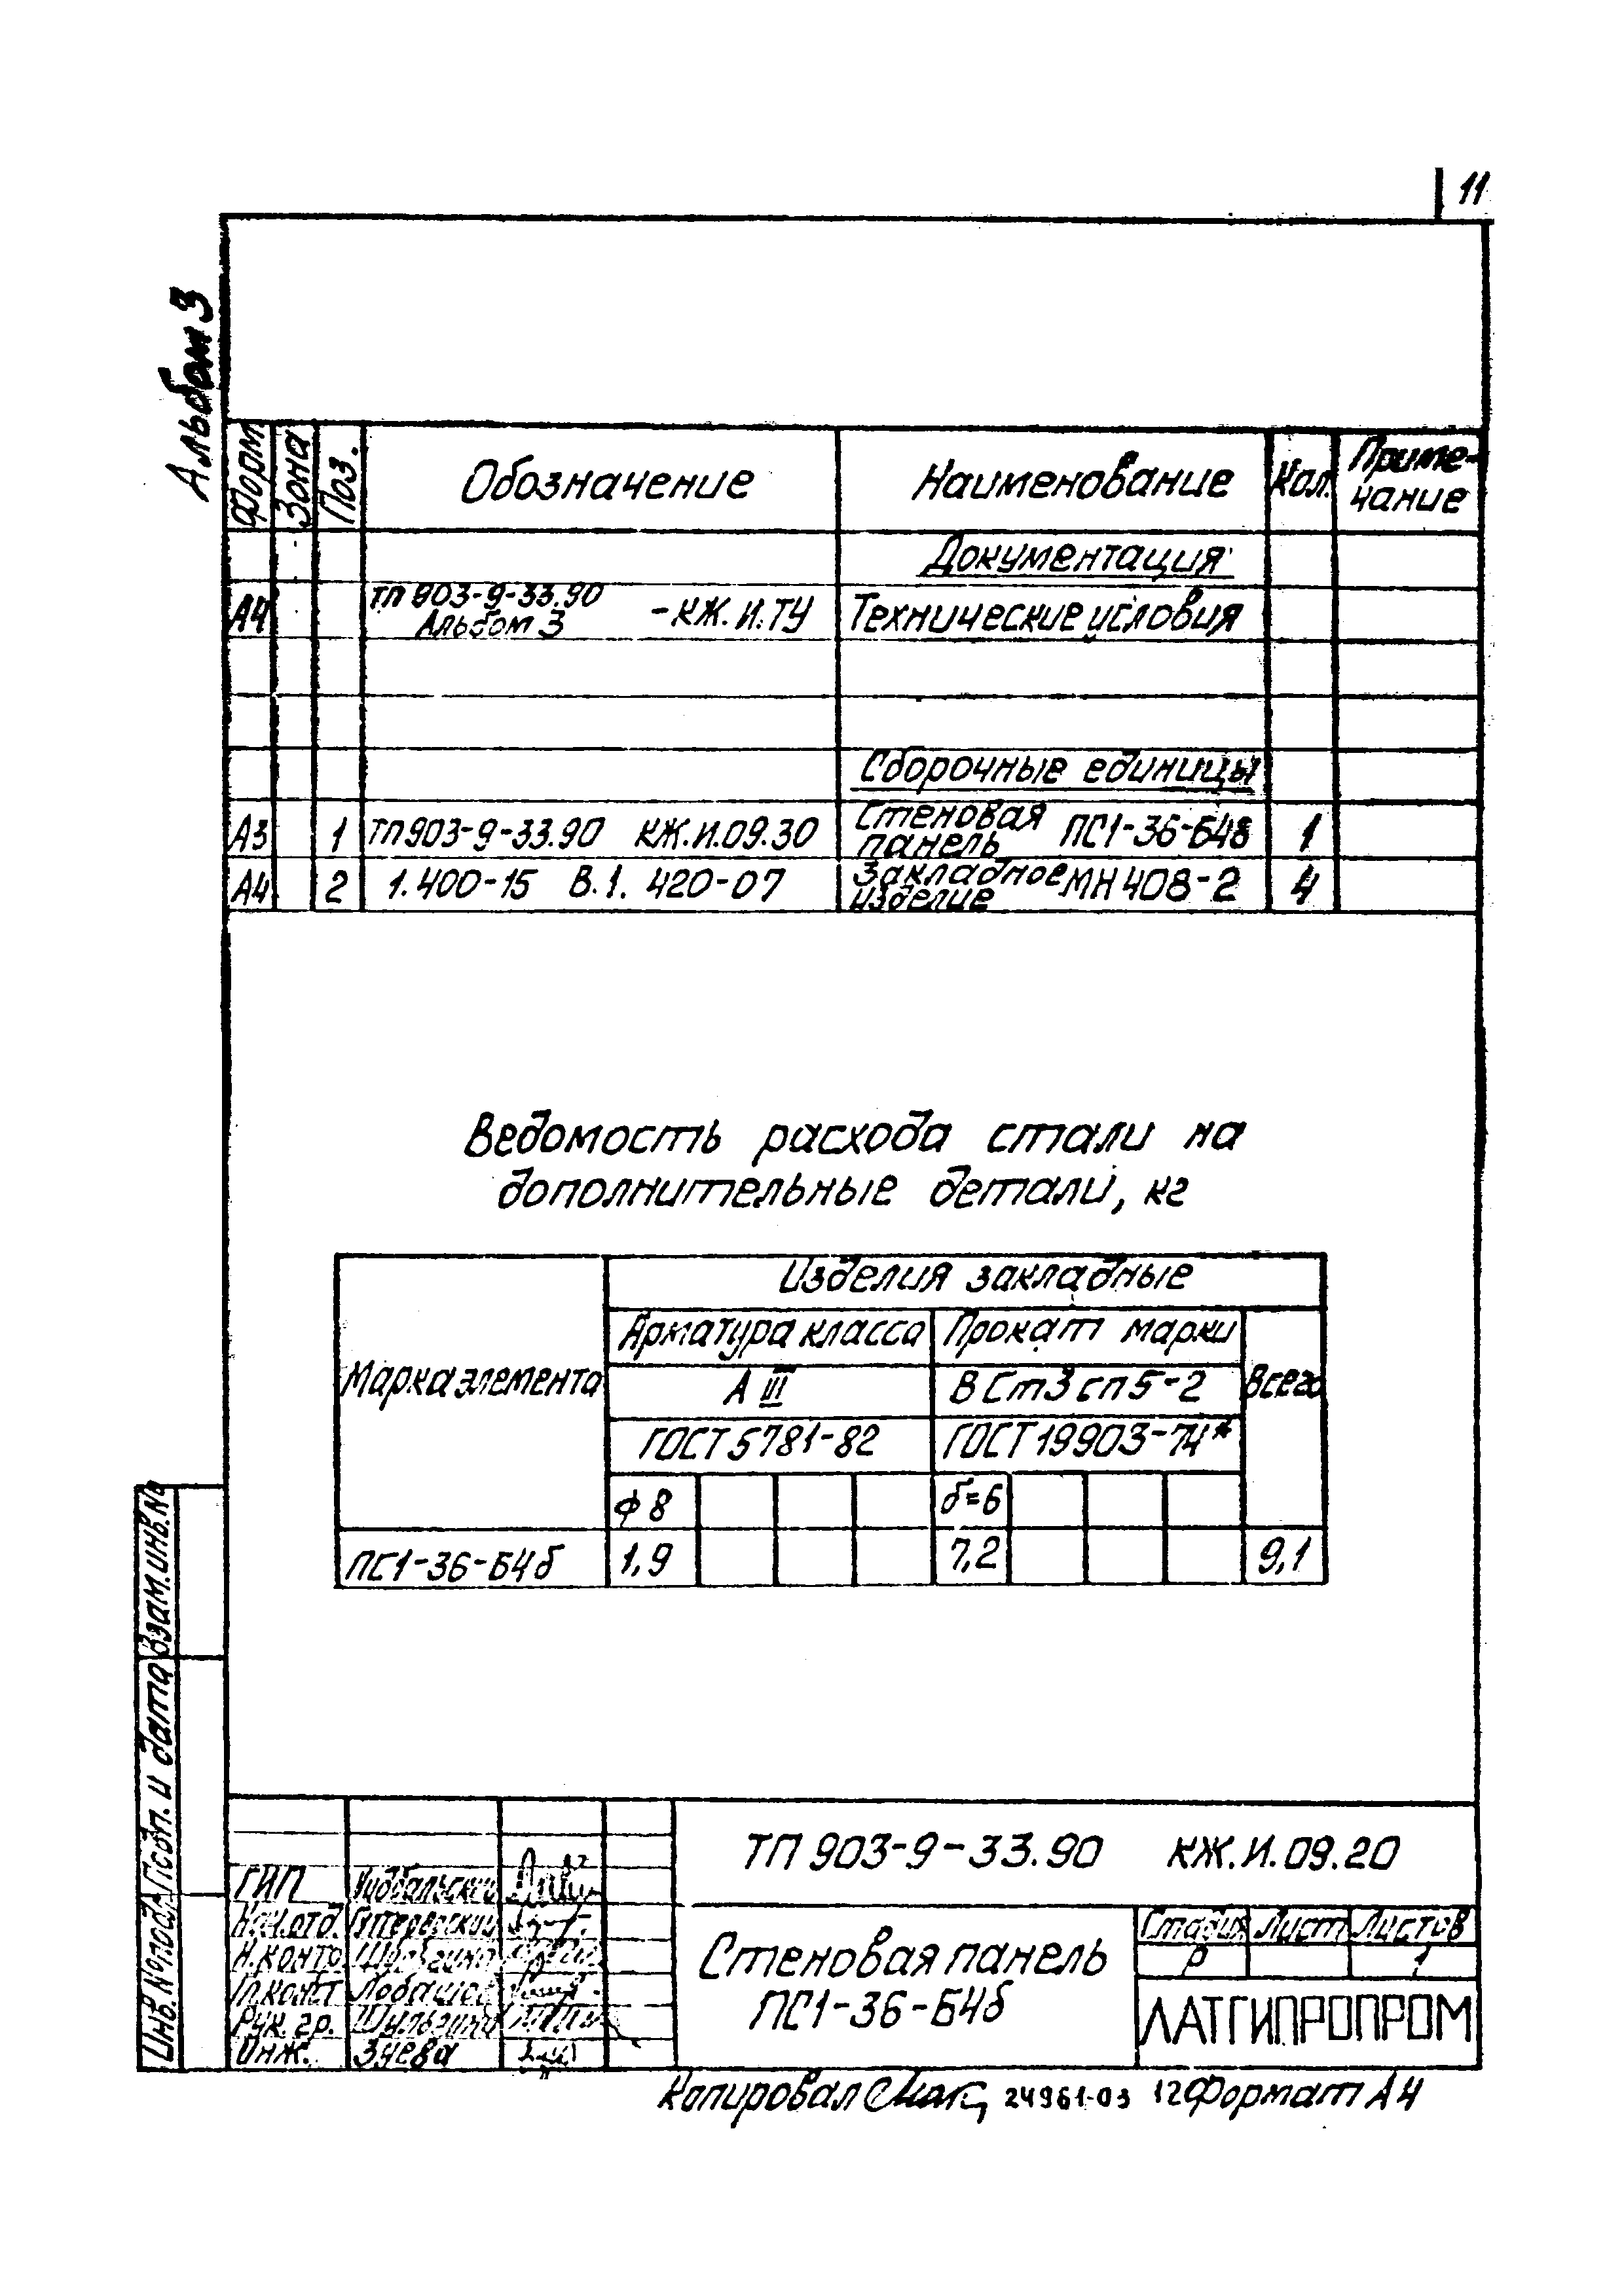 11
Альбом 3
Форм Зона Поз. Обозначение Наименование Кол. Приме-
чание
Документация
А4 ТП 903-9-33.90 -КЖ.И.ТУ Технические условия
Альбом 3
Сборочные единицы
А3 1 ТП 903-9-33.90 КЖ.И.09.30 Стеновая ПС1-36-Б48 1
панель
А4 2 1.400-15 В.1. 420-07 Закладное МН 408-2 4
изделие
Ведомость расхода стали на
дополнительные детали, кг
Изделия закладные
Арматура класса Прокат марки
Марка элемента А III ВСт3сп5-2 Всего
ГОСТ 5781-82 ГОСТ 19903-74*
ф 8 б=6
ПС1-36-Б4б 1,9 7,2 9,1
Взам.инв.№
Подп. и дата
Инв.№подл.
ТП 903-9-33.90 КЖ.И.09.20
ГИП
Нач.отд.
Н.контр.
Гл.конст.
Рук. гр.
Инж. Зуева
Стеновая панель
ПС1-36-Б4б
Стадия Лист Листов
Р 1
ЛАТГИПРОПРОМ
Копировал 24961-03 12 Формат А4